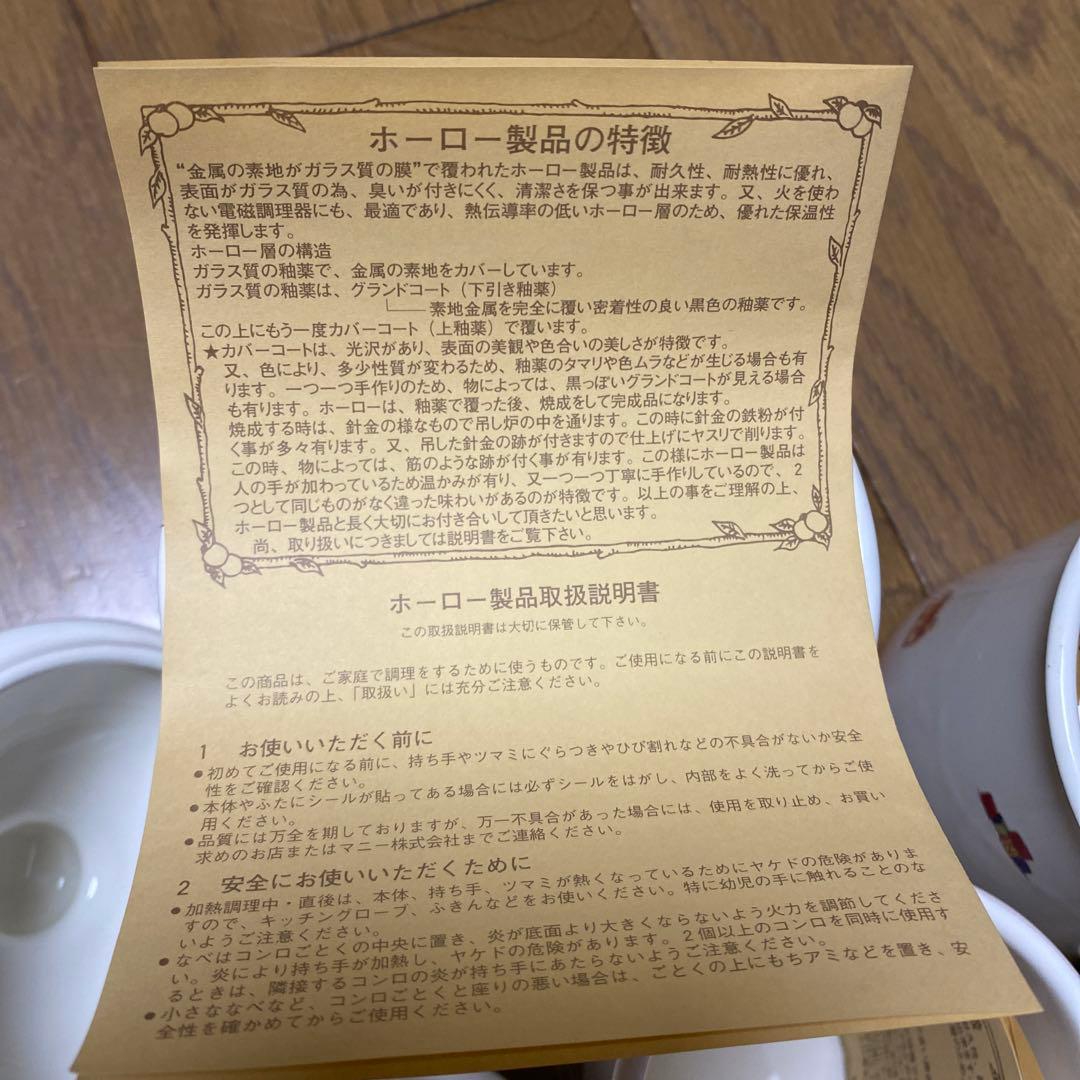 ホーロー製品の特徴
“金属の素地がガラス質の膜”で覆われたホーロー製品は、耐久性、耐熱性に優れ、
表面がガラス質の為、臭いが付きにくく、清潔さを保つ事が出来ます。又、火を使わ
ない電磁調理器にも、最適であり、熱伝導率の低いホーロー層のため、優れた保温性
を発揮します。
ホーロー層の構造
ガラス質の釉薬で、金属の素地をカバーしています。
ガラス質の釉薬は、グランドコート（下引き釉薬）
素地金属を完全に覆い密着性の良い黒色の釉薬です。
この上にもう一度カバーコート（上釉薬）で覆います。
★カバーコートは、光沢があり、表面の美観や色合いの美しさが特徴です。
又、色により、多少性質が変わるため、釉薬のタマリや色ムラなどが生じる場合も有
ります。一つ一つ手作りのため、物によっては、黒っぽいグランドコートが見える場合
も有ります。ホーローは、釉薬で覆った後、焼成をして完成品になります。
焼成する時は、針金の様なもので吊し炉の中を通ります。この時に針金の鉄粉が付
く事が多々有ります。又、吊した針金の跡が付きますので仕上げにヤスリで削ります。
この時、物によっては、筋のような跡が付く事が有ります。この様にホーロー製品は
人の手が加わっているため温かみが有り、又一つ一つ丁寧に手作りしているので、2
つとして同じものがなく違った味わいがあるのが特徴です。以上の事をご理解の上、
ホーロー製品と長く大切にお付き合いして頂きたいと思います。
尚、取り扱いにつきましては説明書をご覧下さい。
ホーロー製品取扱説明書
この取扱説明書は大切に保管して下さい。
この商品は、ご家庭で調理をするために使うものです。ご使用になる前にこの説明書を
よくお読みの上、「取扱い」には充分ご注意ください。
1 お使いいただく前に
●初めてご使用になる前に、持ち手やツマミにぐらつきやひび割れなどの不具合がないか安全
性をご確認ください。
●本体やふたにシールが貼ってある場合には必ずシールをはがし、内部をよく洗ってからご使
用ください。
●品質には万全を期しておりますが、万一不具合があった場合には、使用を取り止め、お買い
求めのお店またはマニー株式会社までご連絡ください。
2 安全にお使いいただくために
●加熱調理中・直後は、本体、持ち手、ツマミが熱くなっているためにヤケドの危険がありま
すので、キッチングローブ、ふきんなどをお使いください。特に幼児の手に触れることのな
いようご注意ください。
●なべはコンロごとくの中央に置き、炎が底面より大きくならないよう火力を調節してくださ
い。炎により持ち手が加熱し、ヤケドの危険があります。2個以上のコンロを同時に使用す
るときは、隣接するコンロの炎が持ち手にあたらないようご注意ください。
●小さななべなど、コンロごとくと座りの悪い場合は、ごとくの上にもちアミなどを置き、安
全性を確かめてからご使用ください。